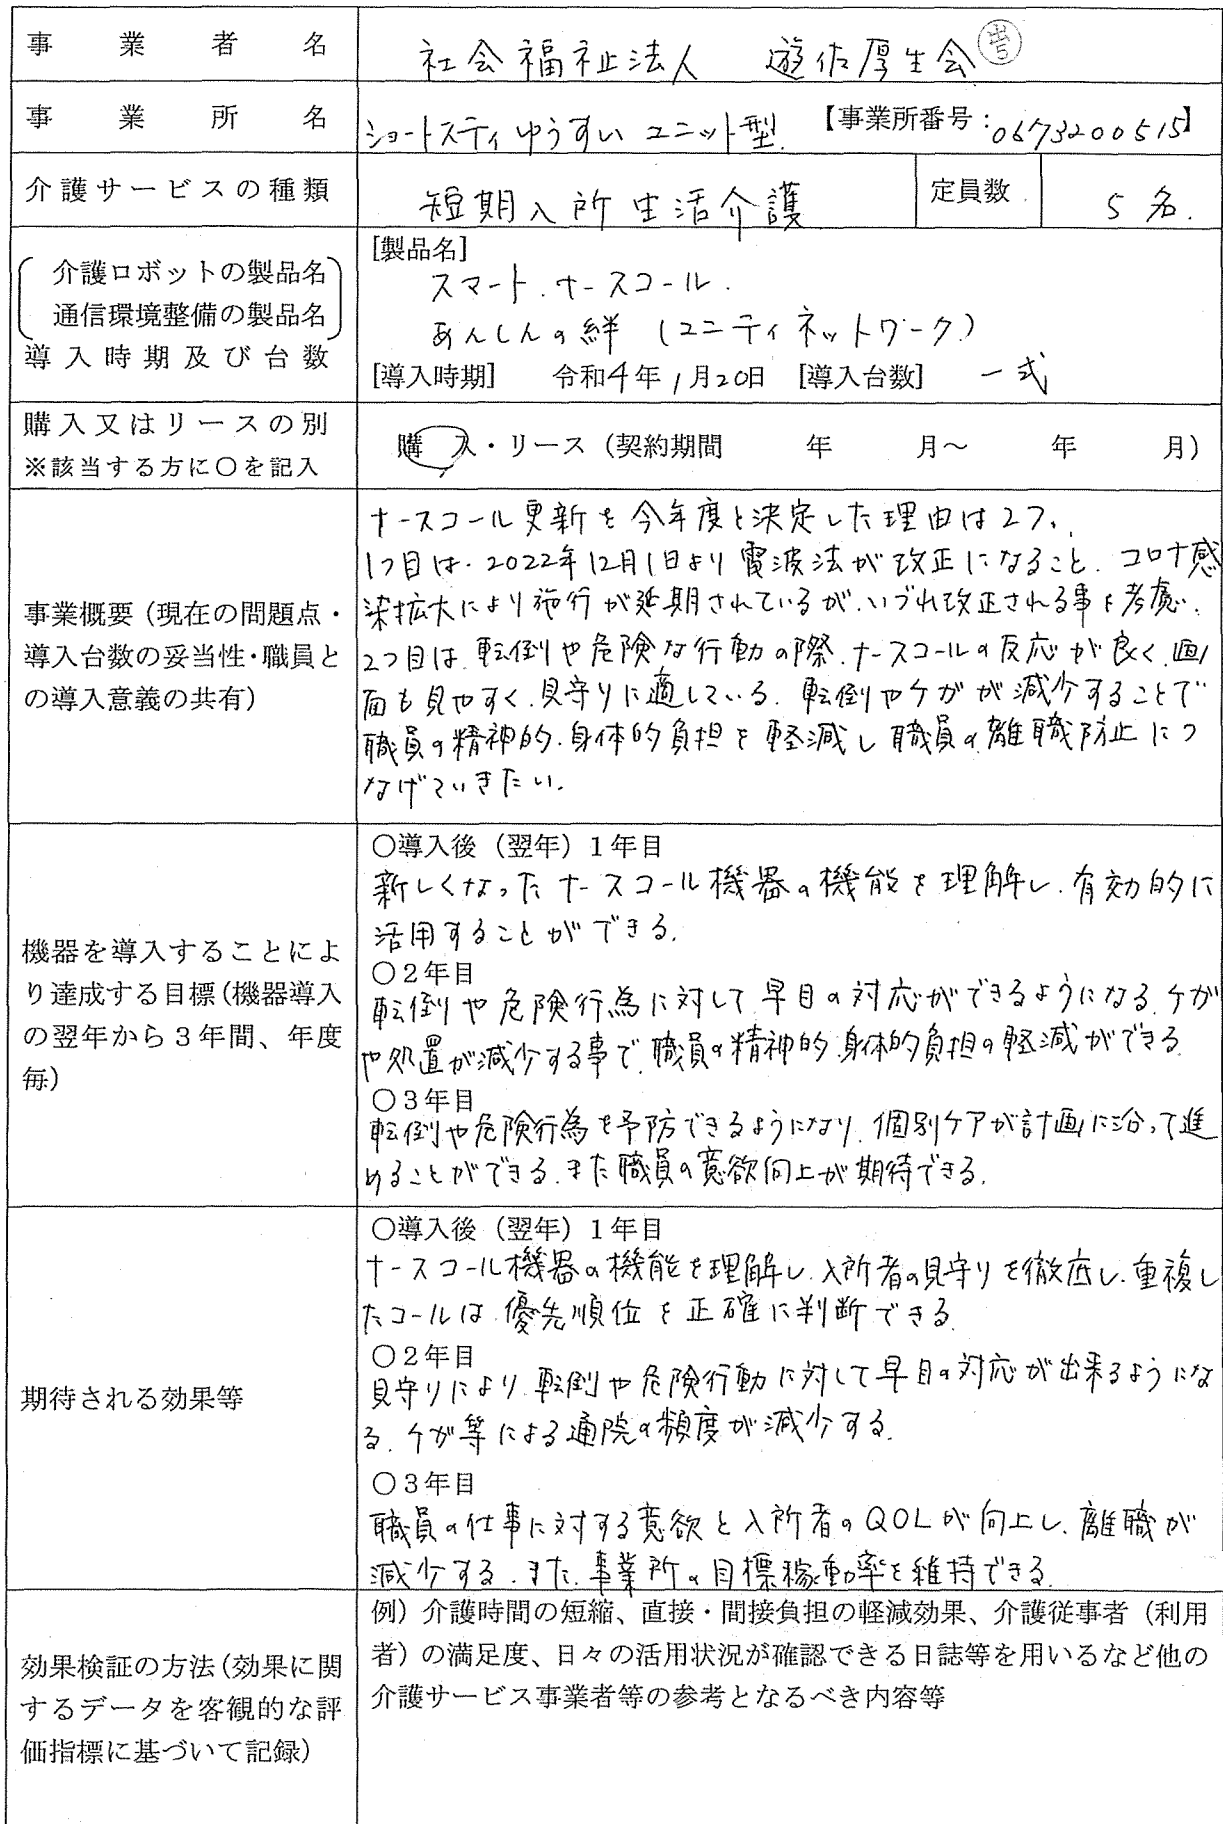 事業者名 社会福祉法人 遊佐厚生会
事業所名 ショートスティゆうすい ユニット型. 【事業所番号:0673200515】
介護サービスの種類 短期入所生活介護 定員数 5名.
[製品名]
介護ロボットの製品名 スマート.ナースコール.
通信環境整備の製品名 あんしんの絆 (ユニティネットワーク)
導入時期及び台数 [導入時期] 令和4年1月20日 [導入台数] 一式
購入又はリースの別
※該当する方に〇を記入
購入・リース(契約期間 年 月~ 年 月)
事業概要(現在の問題点・
導入台数の妥当性・職員と
の導入意義の共有)
ナースコール更新を今年度と決定した理由は2つ、
1つ目は、2022年12月1日より電波法が改正になること、コロナ感
染拡大により施行が延期されているが、いづれ改正される事を考慮、
2つ目は、転倒や危険な行動の際、ナースコールの反応が良く、画
面も見やすく、見守りに適している、転倒やケガが減少することで
職員の精神的、身体的負担を軽減し職員の離職防止につ
なげていきたい.
機器を導入することによ
り達成する目標(機器導入
の翌年から3年間、年度
毎)
〇導入後(翌年)1年目
新しくなったナースコール機器の機能を理解し、有効的に
活用することができる.
〇2年目
転倒や危険行為に対して早目の対応ができるようになる、ケガ
や処置が減少する事で、職員の精神的、身体的負担の軽減ができる
〇3年目
転倒や危険行為を予防できるようになり、個別ケアが計画に沿って進
めることができる、また職員の意欲向上が期待できる.
期待される効果等
〇導入後(翌年)1年目
ナースコール機器の機能を理解し、入所者の見守りを徹底し、重複し
たコールは、優先順位を正確に判断できる.
〇2年目
見守りにより、転倒や危険行動に対して早目の対応が出来るようにな
る、ケガ等による通院の頻度が減少する.
〇3年目
職員の仕事に対する意欲と入所者のQOLが向上し、離職が
減少する.また、事業所の目標稼動率を維持できる.
効果検証の方法(効果に関
するデータを客観的な評
価指標に基づいて記録)
例)介護時間の短縮、直接・間接負担の軽減効果、介護従事者(利用
者)の満足度、日々の活用状況が確認できる日誌等を用いるなど他の
介護サービス事業者等の参考となるべき内容等